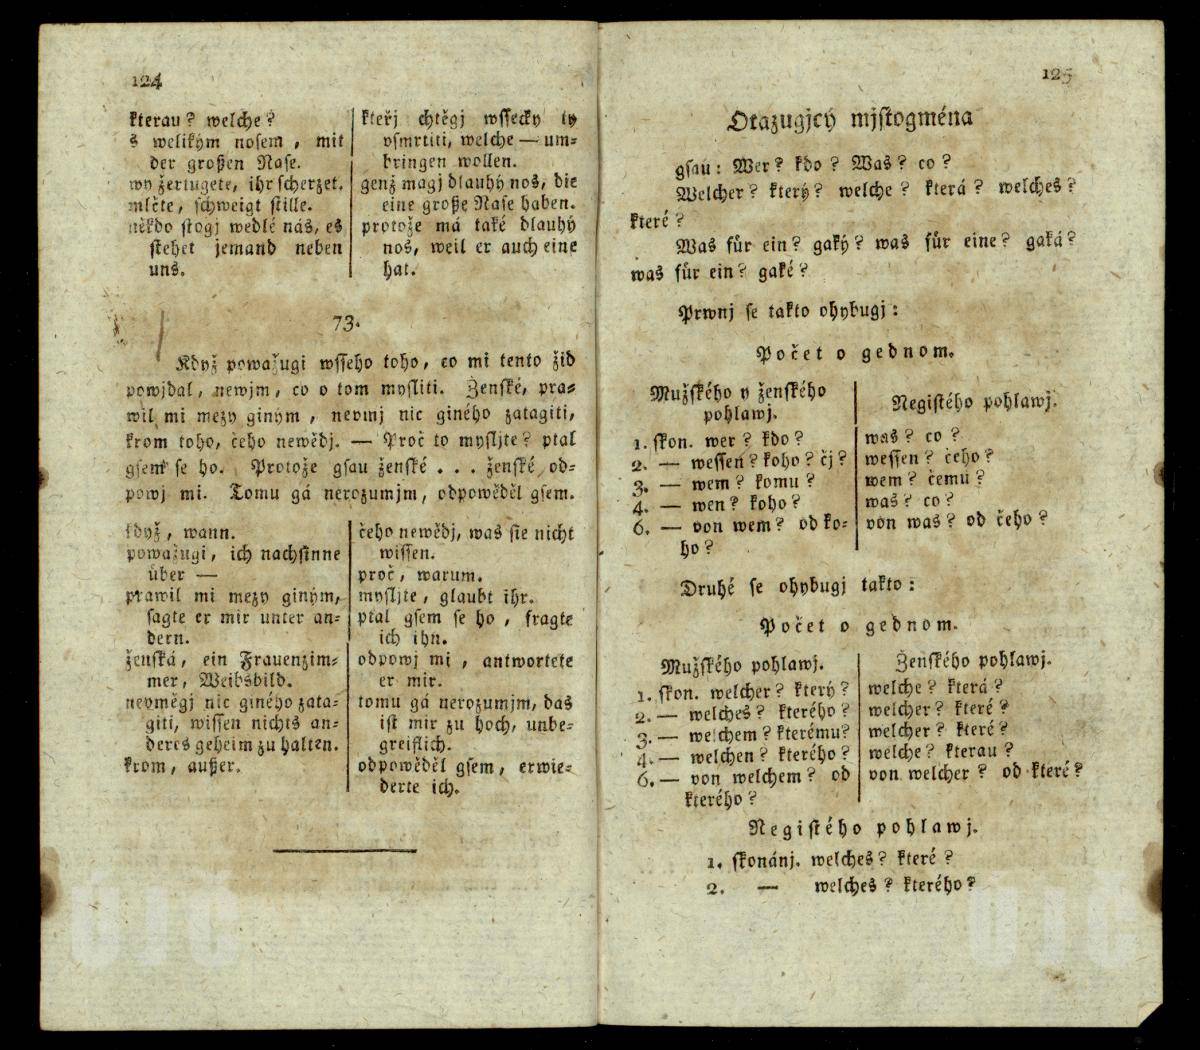 124
kterau? welche?
s welikým nosem, mit
der großen Nase.
wy žertugete, ihr scherzet.
mlčte, schweigt stille.
někdo stogj wedlé nás, es
stehet jemand neben
uns.
kteřj chtěgj wssecky ty
vsmrtiti, welche — um=
bringen wollen.
genž magj dlauhý nos, die
eine große Nase haben.
protože má také dlauhý
nos, weil er auch eine
hat.
73.
Když powažugi wsseho toho, co mi tento žid
powjdal, newjm, co o tom mysliti. Ženské, pra=
wil mi mezy giným, nevmj nic giného zatagiti,
krom toho, čeho newědj. — Proč to mysljte? ptal
gsem se ho. Protože gsau ženské . . . ženské, od=
powj mi. Tomu gá nerozumjm, odpověděl gsem.
když, wann.
powažugi, ich nachsinne
über —
prawil mi mezy giným,
sagte er mir unter an=
dern.
ženská, ein Frauenzim=
mer, Weibsbild.
nevmějj nic giného zata=
giti, wissen nichts an=
deres geheim zu halten.
krom, außer.
čeho newědj, was sie nicht
wissen.
proč, warum.
mysljte, glaubt ihr.
ptal gsem se ho, fragte
ich ihn.
odpowj mi, antwortete
er mir.
tomu gá nerozumjm, das
ist mir zu hoch, unbe=
greiflich.
odpowěděl gsem, erwie=
derte ich.
125
Otazugjcý mjstogména
gsau: Wer? kdo? Was? co?
Welcher? který? welche? která? welches?
které?
Was für ein? gaký? was für eine? gaká?
was für ein? gaké?
Prwnj se takto ohybugj:
Počet o gednom.
Mužského y ženského
pohlawj.
1. skon. wer? kdo?
2. — wessen? koho? čj?
3. — wem? komu?
4. — wen? koho?
6. — von wem? od ko=
ho?
Negistého pohlawj.
was? co?
wessen? čeho?
wem? čemu?
was? co?
von was? od čeho?
Druhé se ohybugj takto:
Počet o gednom.
Mužského pohlawj.
1. skon. welcher? který?
2. — welches? kterého?
3. — welchem? kterému?
4. — welchen? kterého?
6. — von welchem? od
kterého?
Ženského pohlawj.
welche? která?
welcher? které?
welcher? které?
welche? kterau?
von welcher? od které?
Negistého pohlawj.
1. skonánj. welches? které?
2. — welches? kterého?